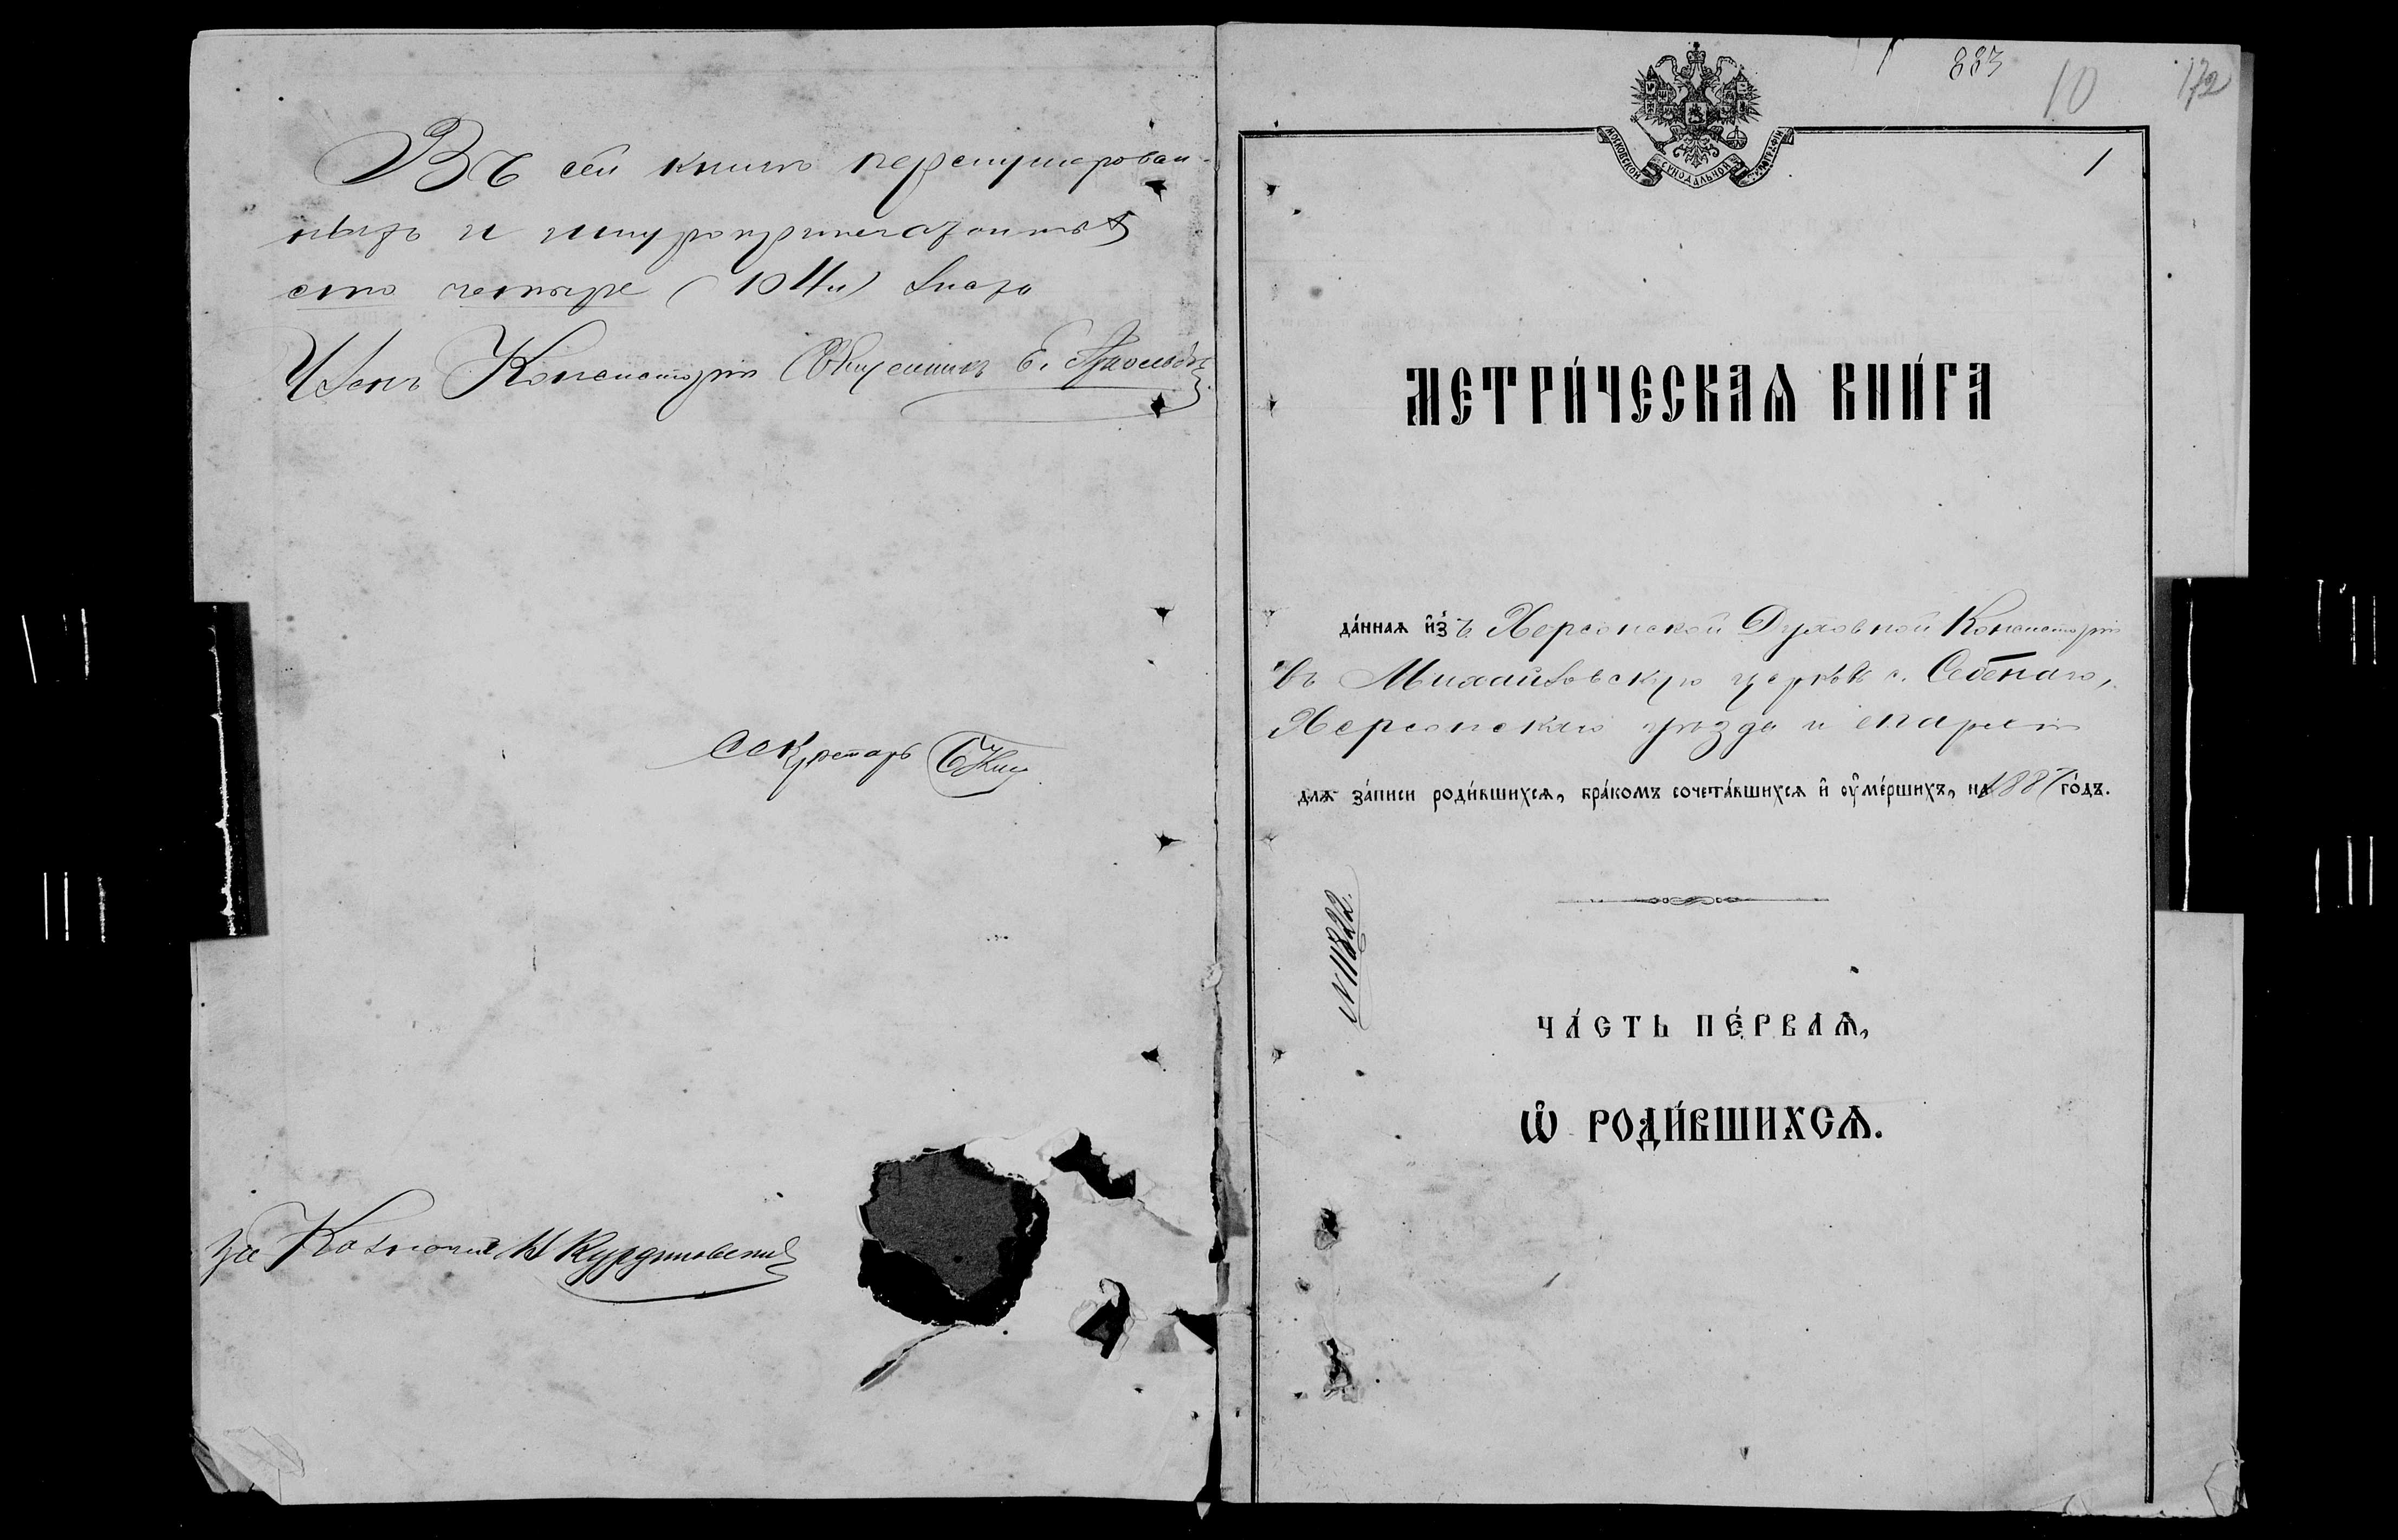 Въ сей книгѣ перенумерован-
ныхъ и шнуроприпечатанныхъ
сто четыре (104) листа
Членъ Консисторіи Священникъ Е.
Секретарь
За Казначея
883
10
172
1
МОСКОВСКОЙ СѴНОДАЛЬНОЙ ТИПОГРАФІИ
МЕТРИ́ЧЕСКАѦ КНИ́ГА
да́ннаѧ и҆з ъ Херсонской Духовной Консисторіи
въ Михайловскую церковь с. Себѣнаго,
Херсонскаго уѣзда и епархіи
длѧ за́писи роди́вшихсѧ, бра́комъ сочета́вшихсѧ и҆ ᲂу҆ме́ршихъ, на 1887 го́дъ.
N 11822.
ЧА́СТЬ ПЕ́РВАѦ,
Ѡ҆ РОДИ́ВШИХСѦ.